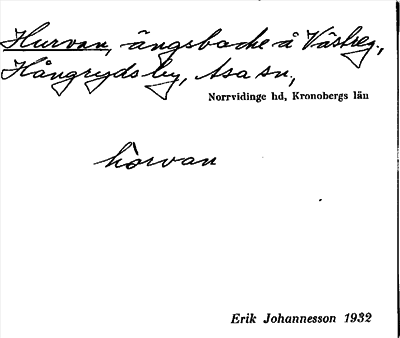 Hurvan, ängsbacke å Västreg.,
Hångryds by, Asa sn,
Norrvidinge hd, Kronobergs län
hòrvan
Erik Johannesson 1932